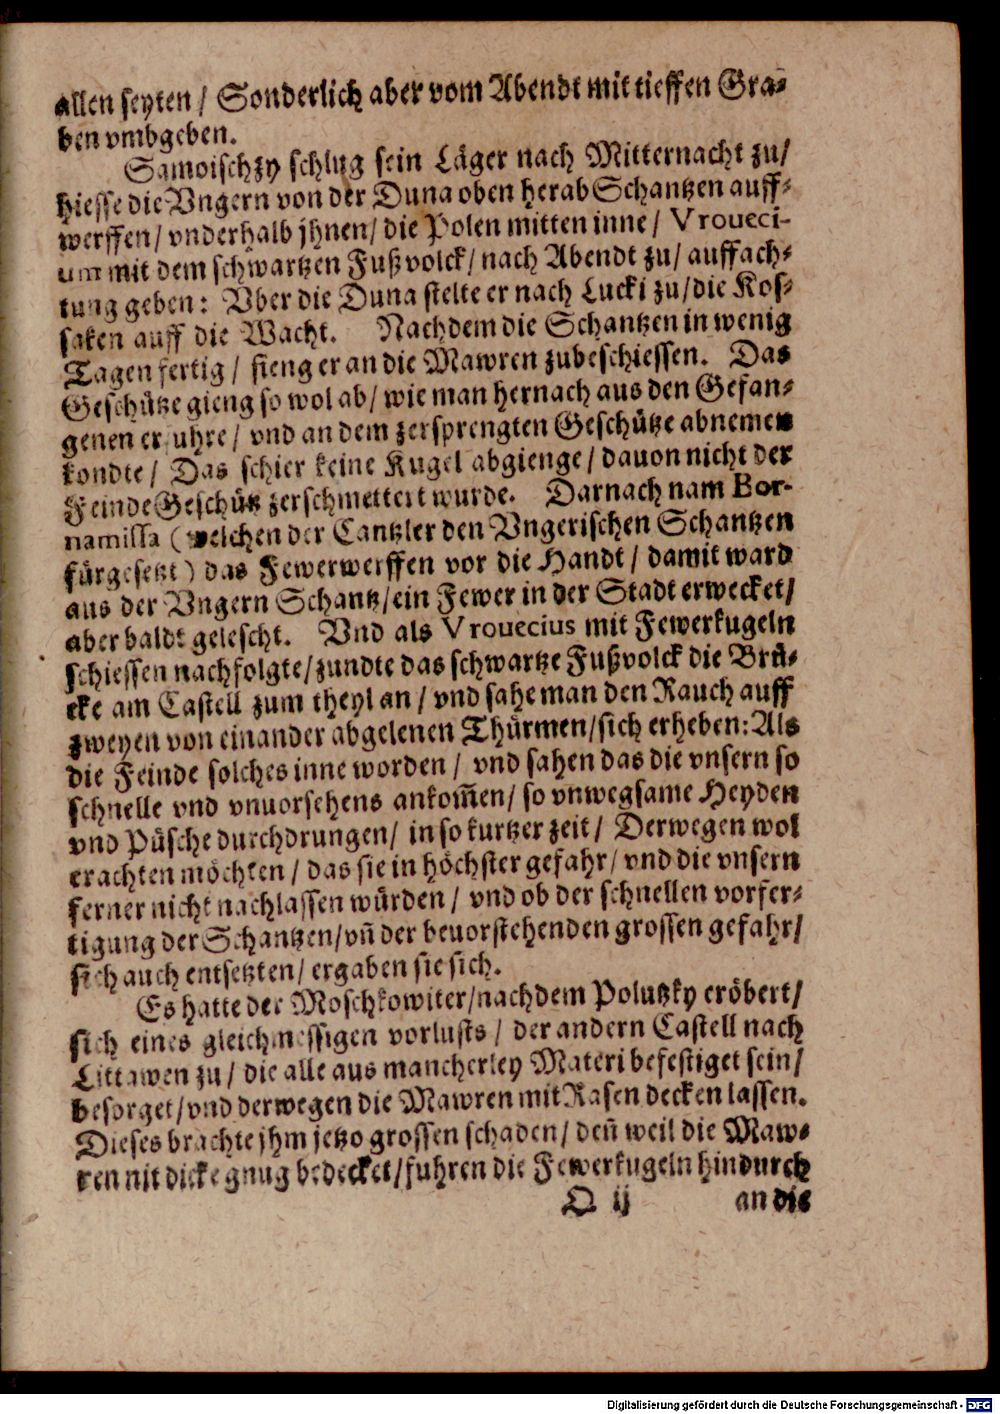 allen seyten / Sonderlich aber vom Abendt mit tieffen Gra-
ben vmbgeben.
Samoischzy schlug sein Läger nach Mitternacht zu/
hiesse die Vngern von der Duna oben herab Schantzen auff-
werffen/ vnderhalb jhnen/ die Polen mitten inne/ Vroueci-
um mit dem schwartzen Fußvolck/ nach Abendt zu/ auffach-
tung geben: Vber die Duna stelte er nach Lucki zu/die Kos-
saken auff die Wacht. Nachdem die Schantzen in wenig
Tagen fertig/ fieng er an die Mawren zubeschiessen. Das
Geschütze gieng so wol ab/ wie man hernach aus den Gefan-
genen erfuhre/ vnd an dem zersprengten Geschütze abnemen
kondte/ Das schier keine Kugel abgienge/ dauon nicht der
Feinde Geschütz zerschmettert wurde. Darnach nam Bor-
namissa (welchen der Cantzler den Vngerischen Schantzen
fürgesetzt) das Fewerwerffen vor die Handt/ damit ward
aus der Vngern Schantz/ein Fewer in der Stadt erwecket/
aber baldt gelescht. Vnd als Vrouecius mit Fewerkugeln
schiessen nachfolgte/zundte das schwartze Fußvolck die Brü-
cke am Castell zum theyl an/ vnd sahe man den Rauch auff
zweyen von einander abgelenen Thürmen/sich erheben: Als
die Feinde solches inne worden/ vnd sahen das die vnsern so
schnelle vnd vnuorsehens ankom̃en/ so vnwegsame Heyden
vnd Püsche durchdrungen/ in so kurtzer zeit/ Derwegen wol
erachten möchten/ das sie in höchster gefahr/ vnd die vnsern
ferner nicht nachlassen würden/ vnd ob der schnellen vorfer-
tigung der Schantzen/vñ der beuorstehenden grossen gefahr/
sich auch entsetzten/ ergaben sie sich.
Es hatte der Moschkowiter/nachdem Polutzky eröbert/
sich eines gleichmessigen vorlusts/ der andern Castell nach
Littawen zu/ die alle aus mancherley Materi befestiget sein/
besorget/vnd derwegen die Mawren mit Rasen decken lassen.
Dieses brachte jhm jetzo grossen schaden/ deñ weil die Maw-
ren nit dicke gnug bedecket/fuhren die Fewerkugeln hindurch
O ij an die
Digitalisierung gefördert durch die Deutsche Forschungsgemeinschaft - DFG